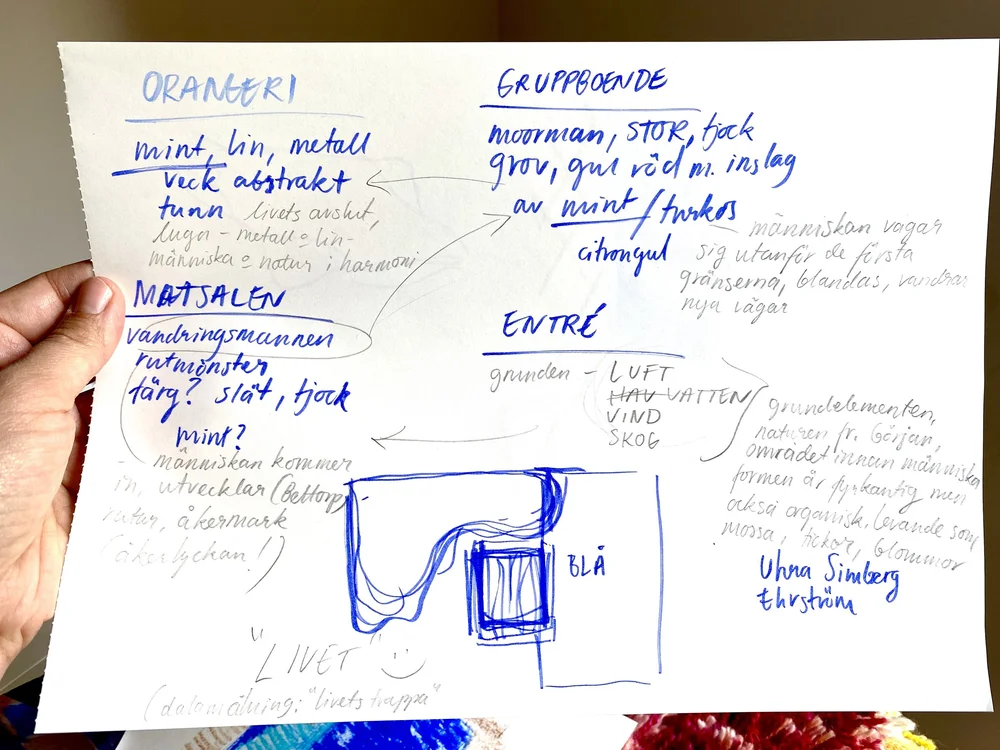 ORANGERI
mint, lin, metall
veck abstrakt
tunn livets avslut,
lugn - metall o lin -
människa o natur i harmoni
GRUPPBOENDE
moorman, STOR, tjock
grov, gul röd m. inslag
av mint / turkos
citrongul
människan vågar
sig utanför de första
gränserna, blandas, vandrar
nya vägar
MATSALEN
vandringsmannen
rutmönster
färg? slät, tjock
mint?
- människan kommer
in, utvecklar (Bettorp)
natur, åkermark
(åkerlyckan!)
ENTRÉ
grunden - LUFT
HAV VATTEN
VIND
SKOG
grundelementen,
naturen fr. början,
området innan människa
formen är fyrkantig men
också organisk. levande som
mossa, tickor, blommor
Uhra Simberg
Ehrström
BLÅ
"LIVET" :-)
(dalamålning: "livets trappa"